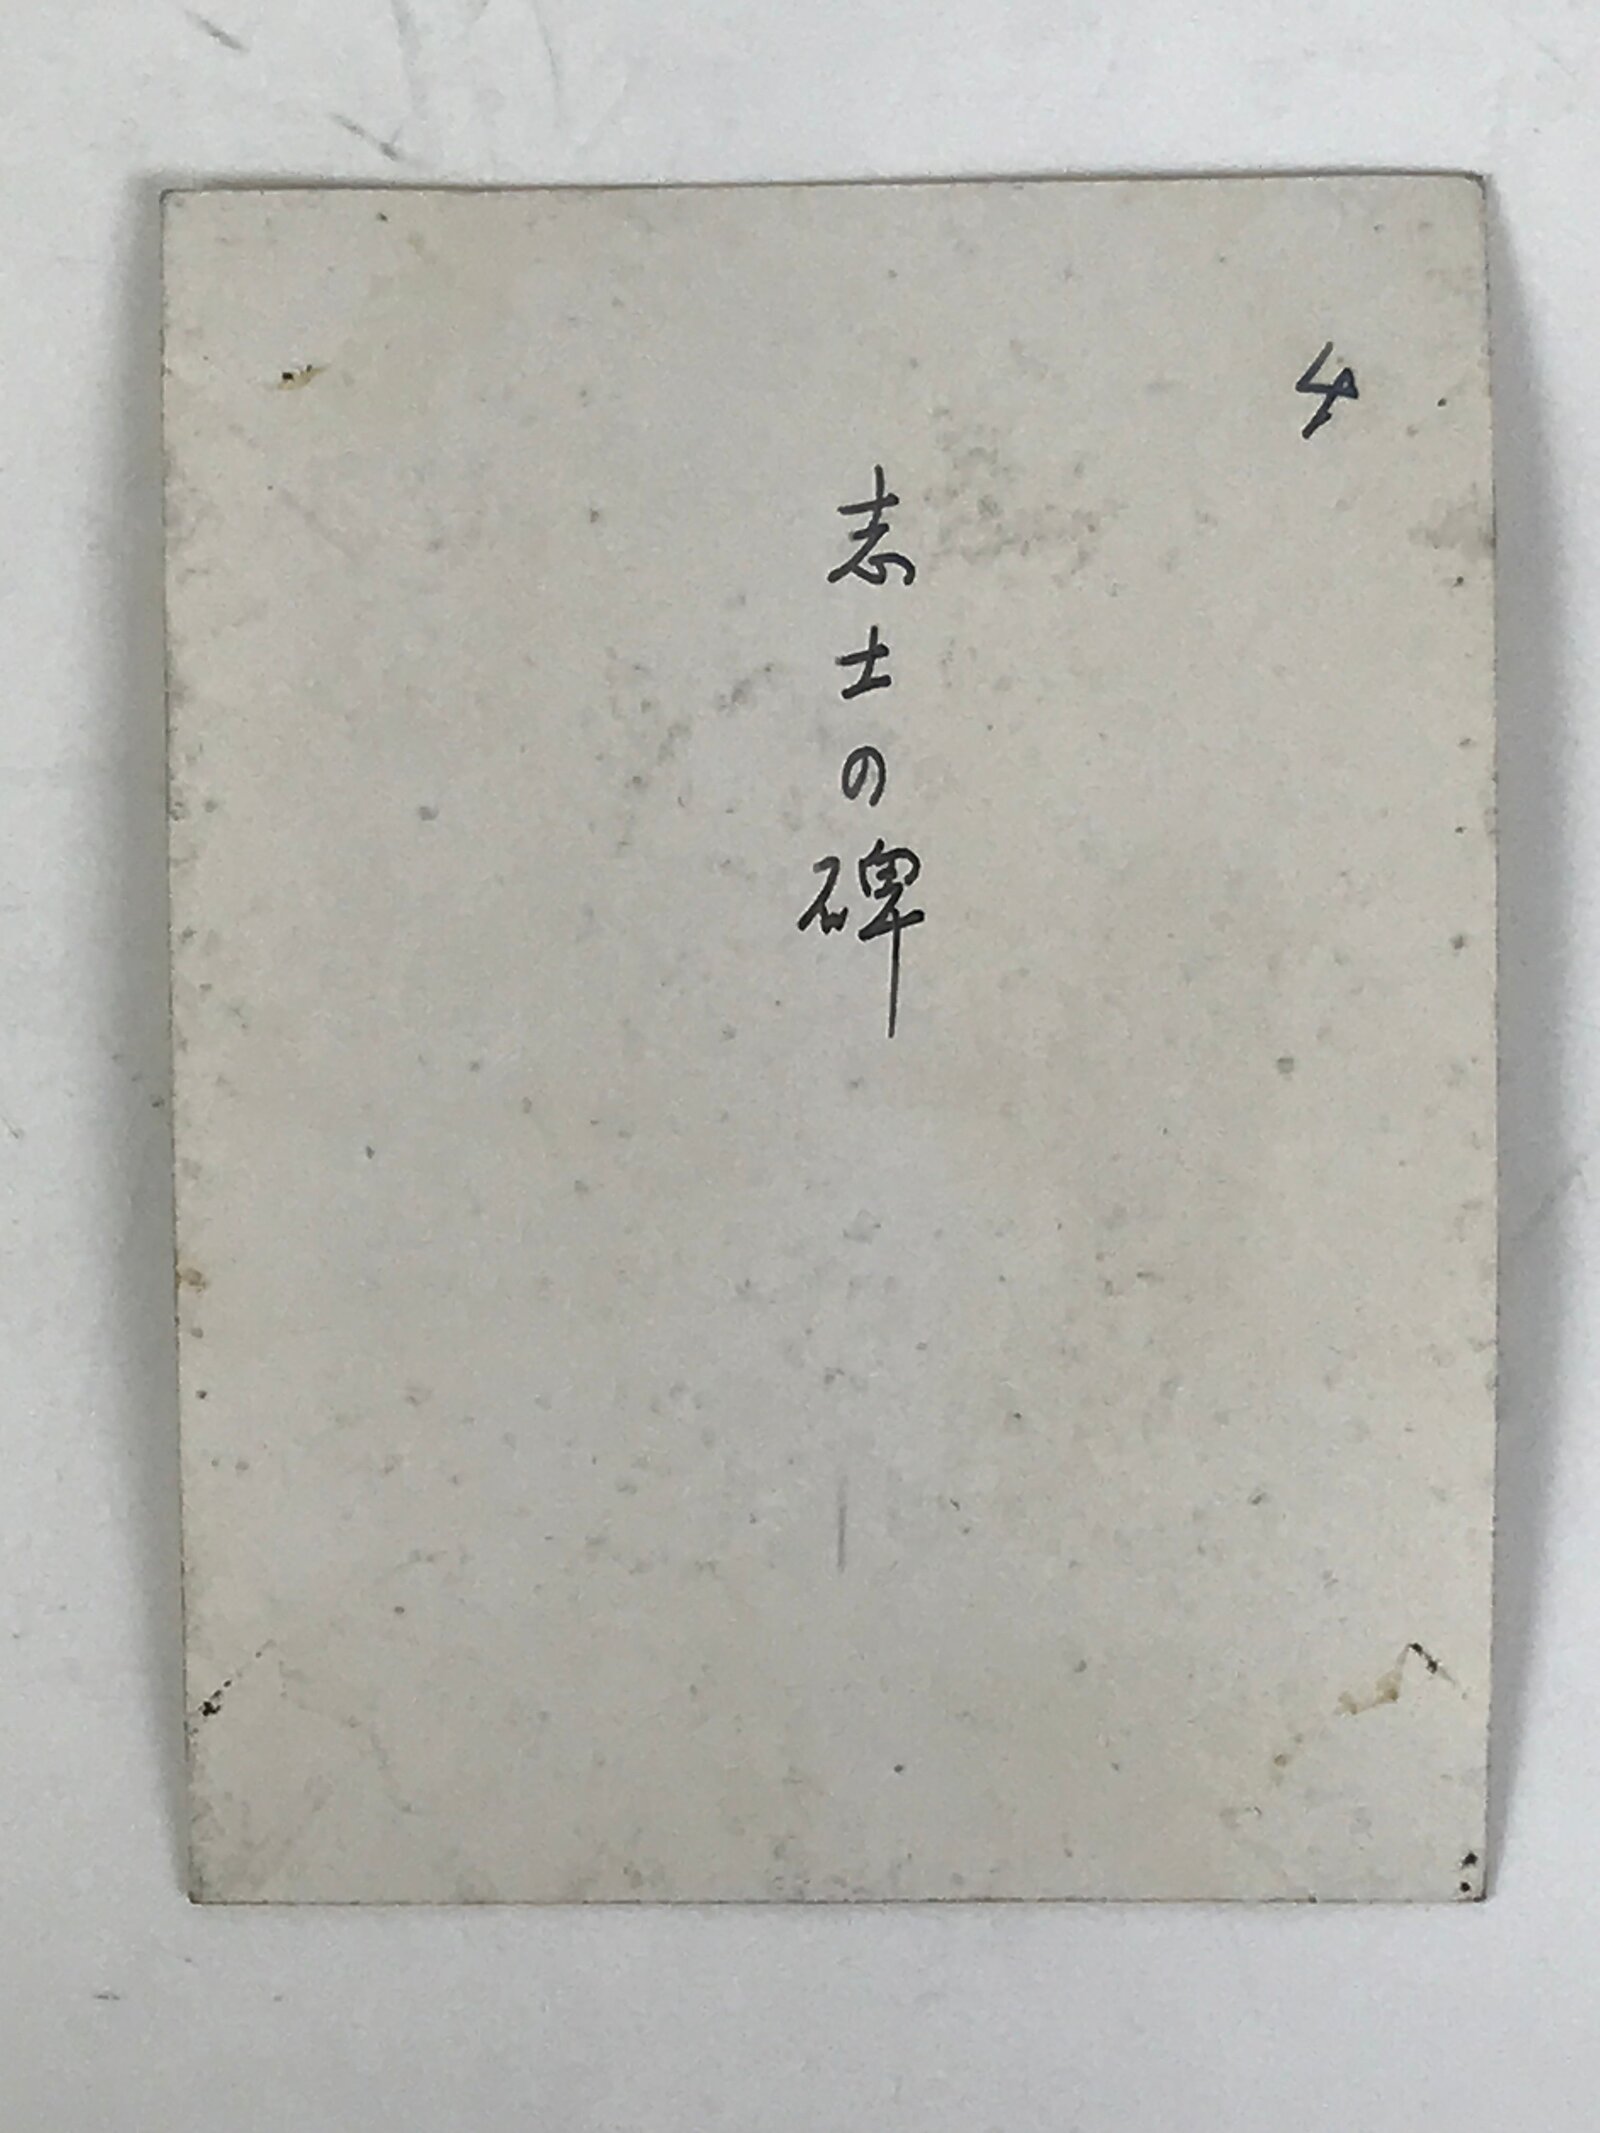 4
志士の碑